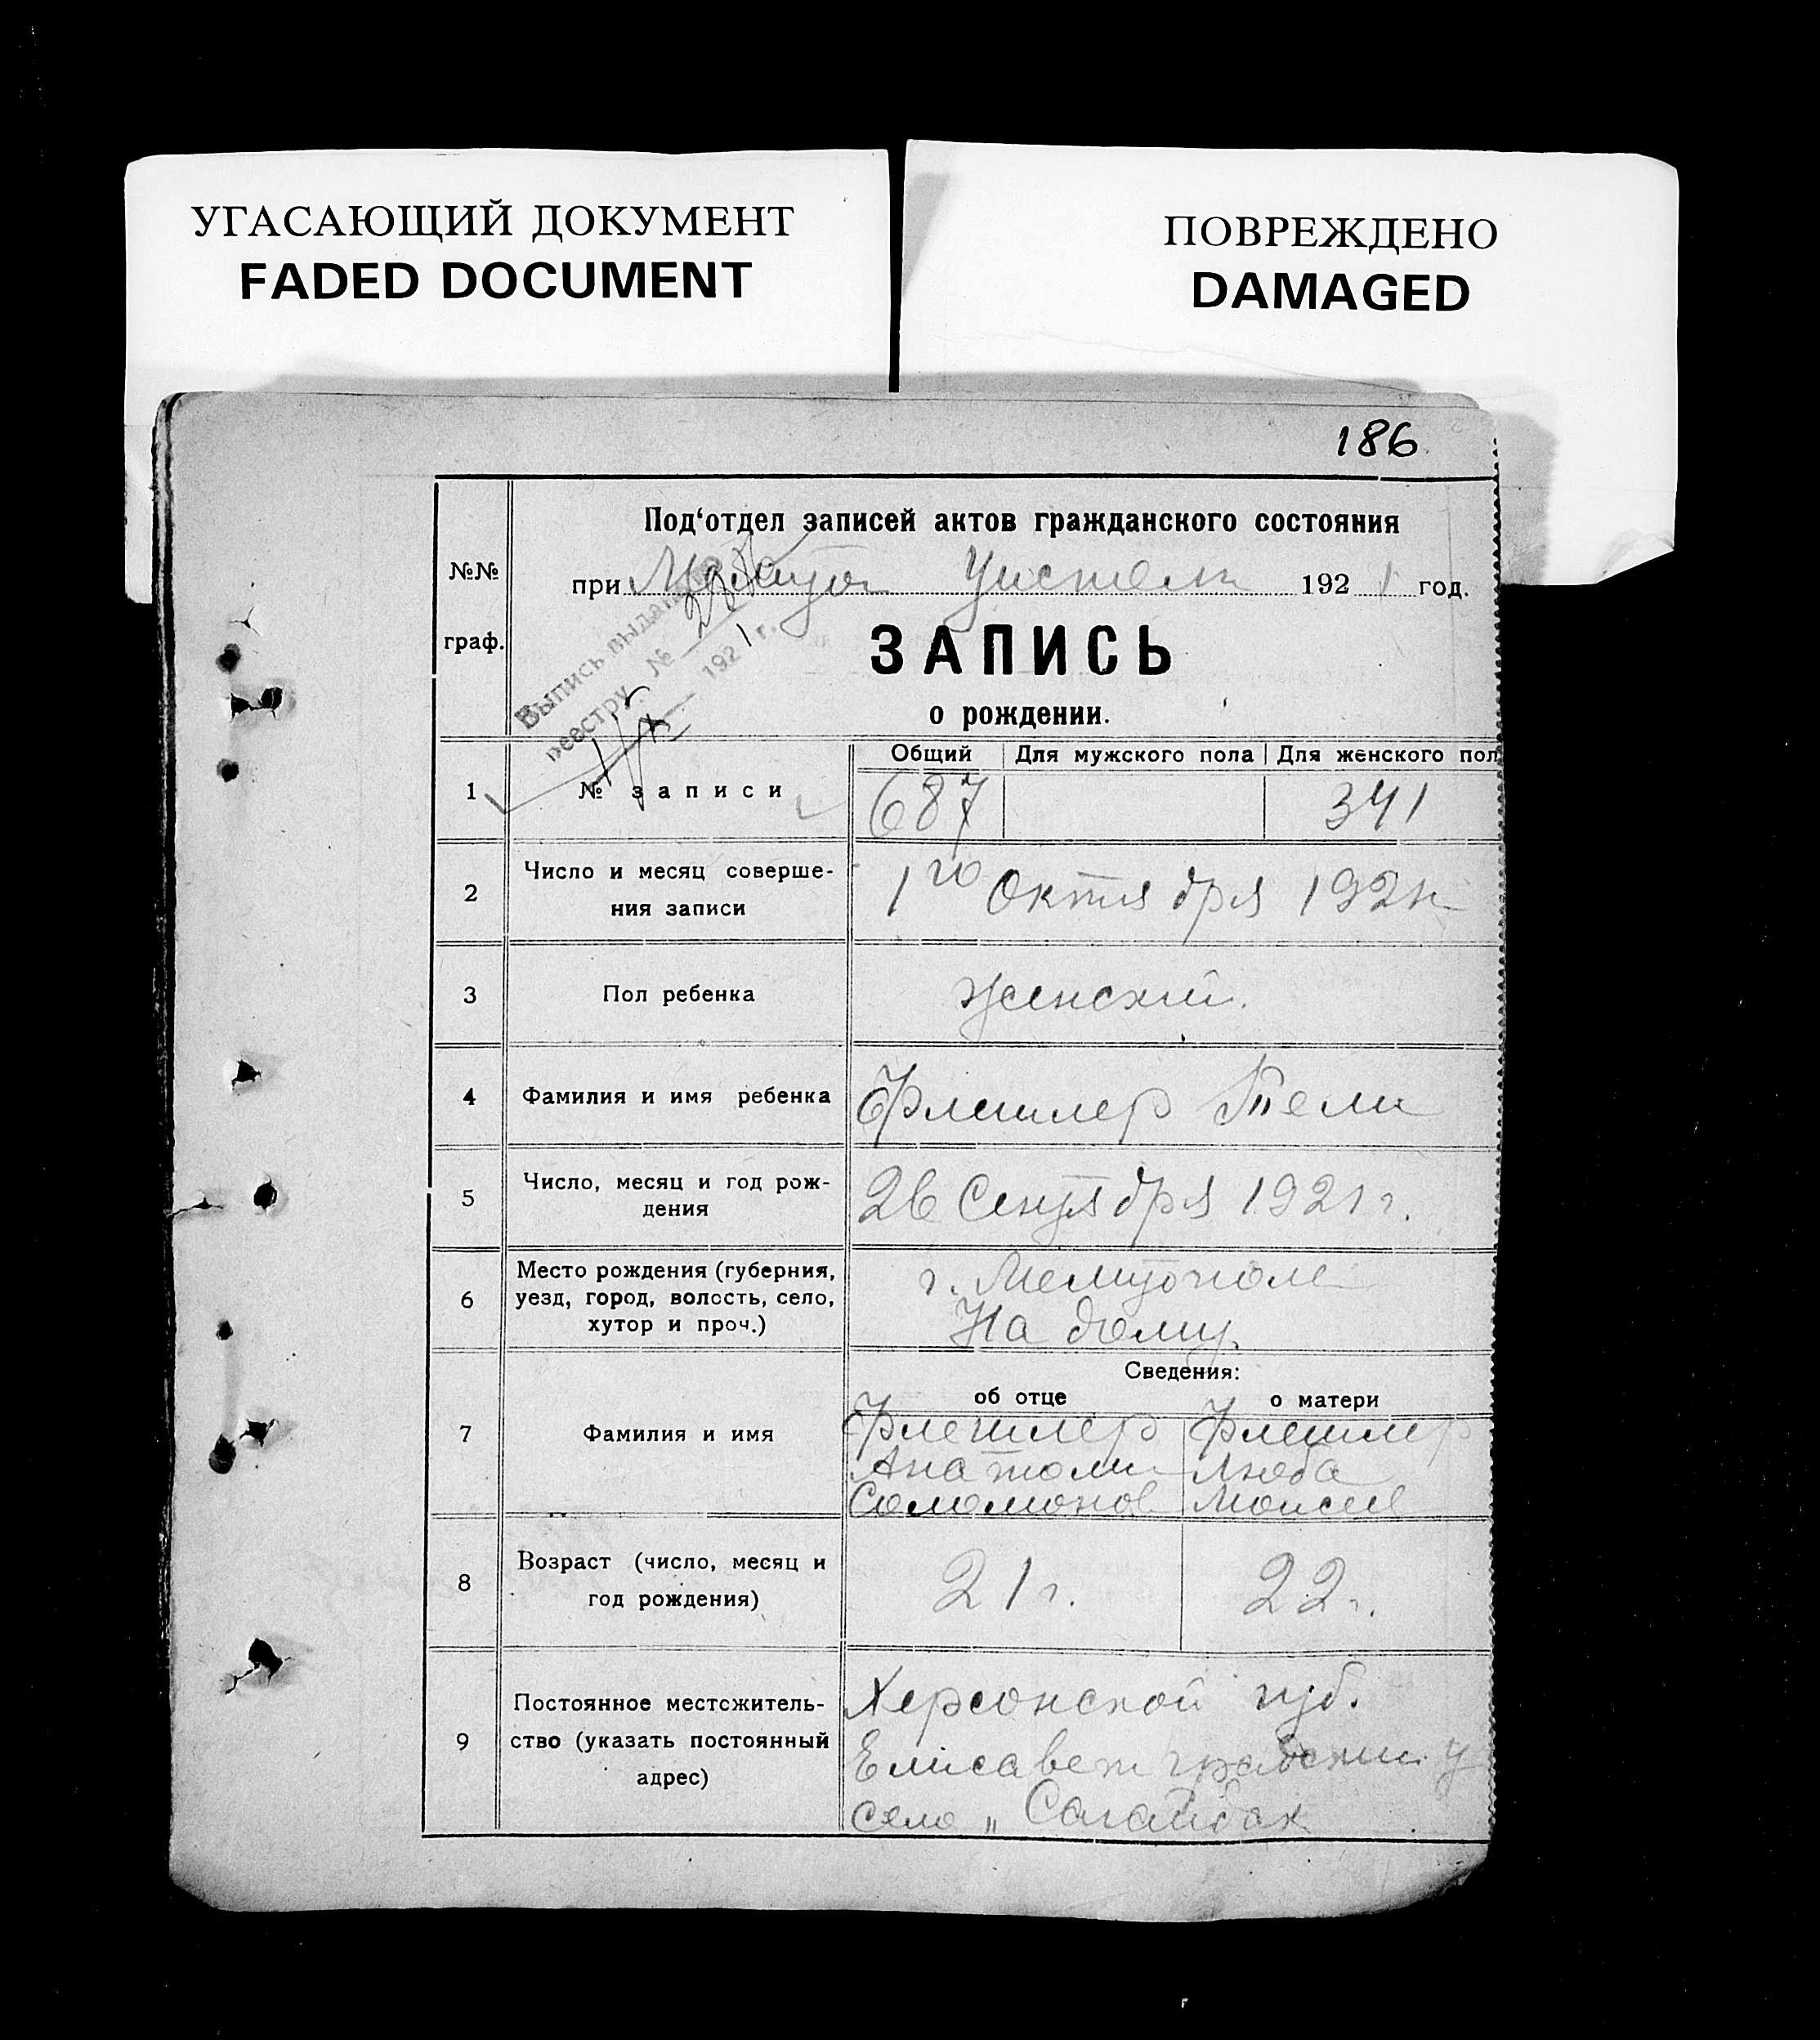 УГАСАЮЩИЙ ДОКУМЕНТ
FADED DOCUMENT
ПОВРЕЖДЕНО
DAMAGED
186
№№
граф.
Под‘отдел записей актов гражданского состояния
при 1921 год.
Выпись выдана
реестру № 288
1921 г.
ЗАПИСЬ
о рождении.
Общий Для мужского пола Для женского пол
1 № записи 687 341
2 Число и месяц соверше-
ния записи
1го Октября 1921г
3 Пол ребенка Женский.
4 Фамилия и имя ребенка Флешлер
5 Число, месяц и год рож-
дения
26 Сентября 1921 г.
6 Место рождения (губерния,
уезд, город, волость, село,
хутор и проч.)
г. Мелитополе
На дому.
Сведения:
об отце о матери
7 Фамилия и имя
Флешлер Флешлер
Анатоли Люба
Соломонов Моисее
8 Возраст (число, месяц и
год рождения)
21 г. 22 г.
9 Постоянное местожитель-
ство (указать постоянный
адрес)
Херсонской губ.
Елисаветградский у
село „ Сагайдак